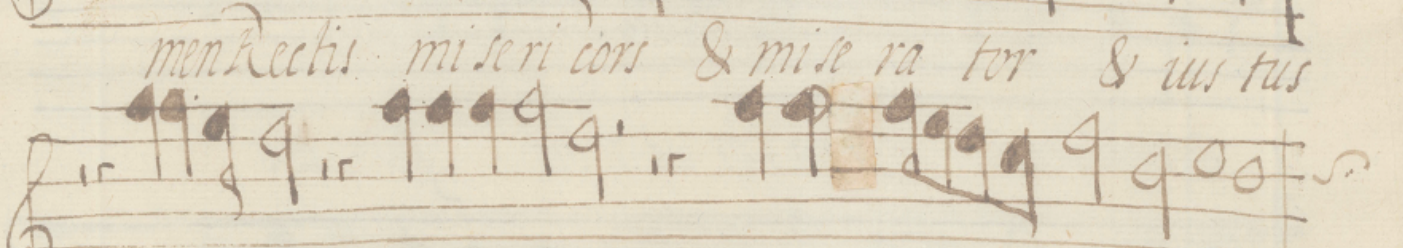 men Rectis mi se ri cors & mi se ra tor & ius tus